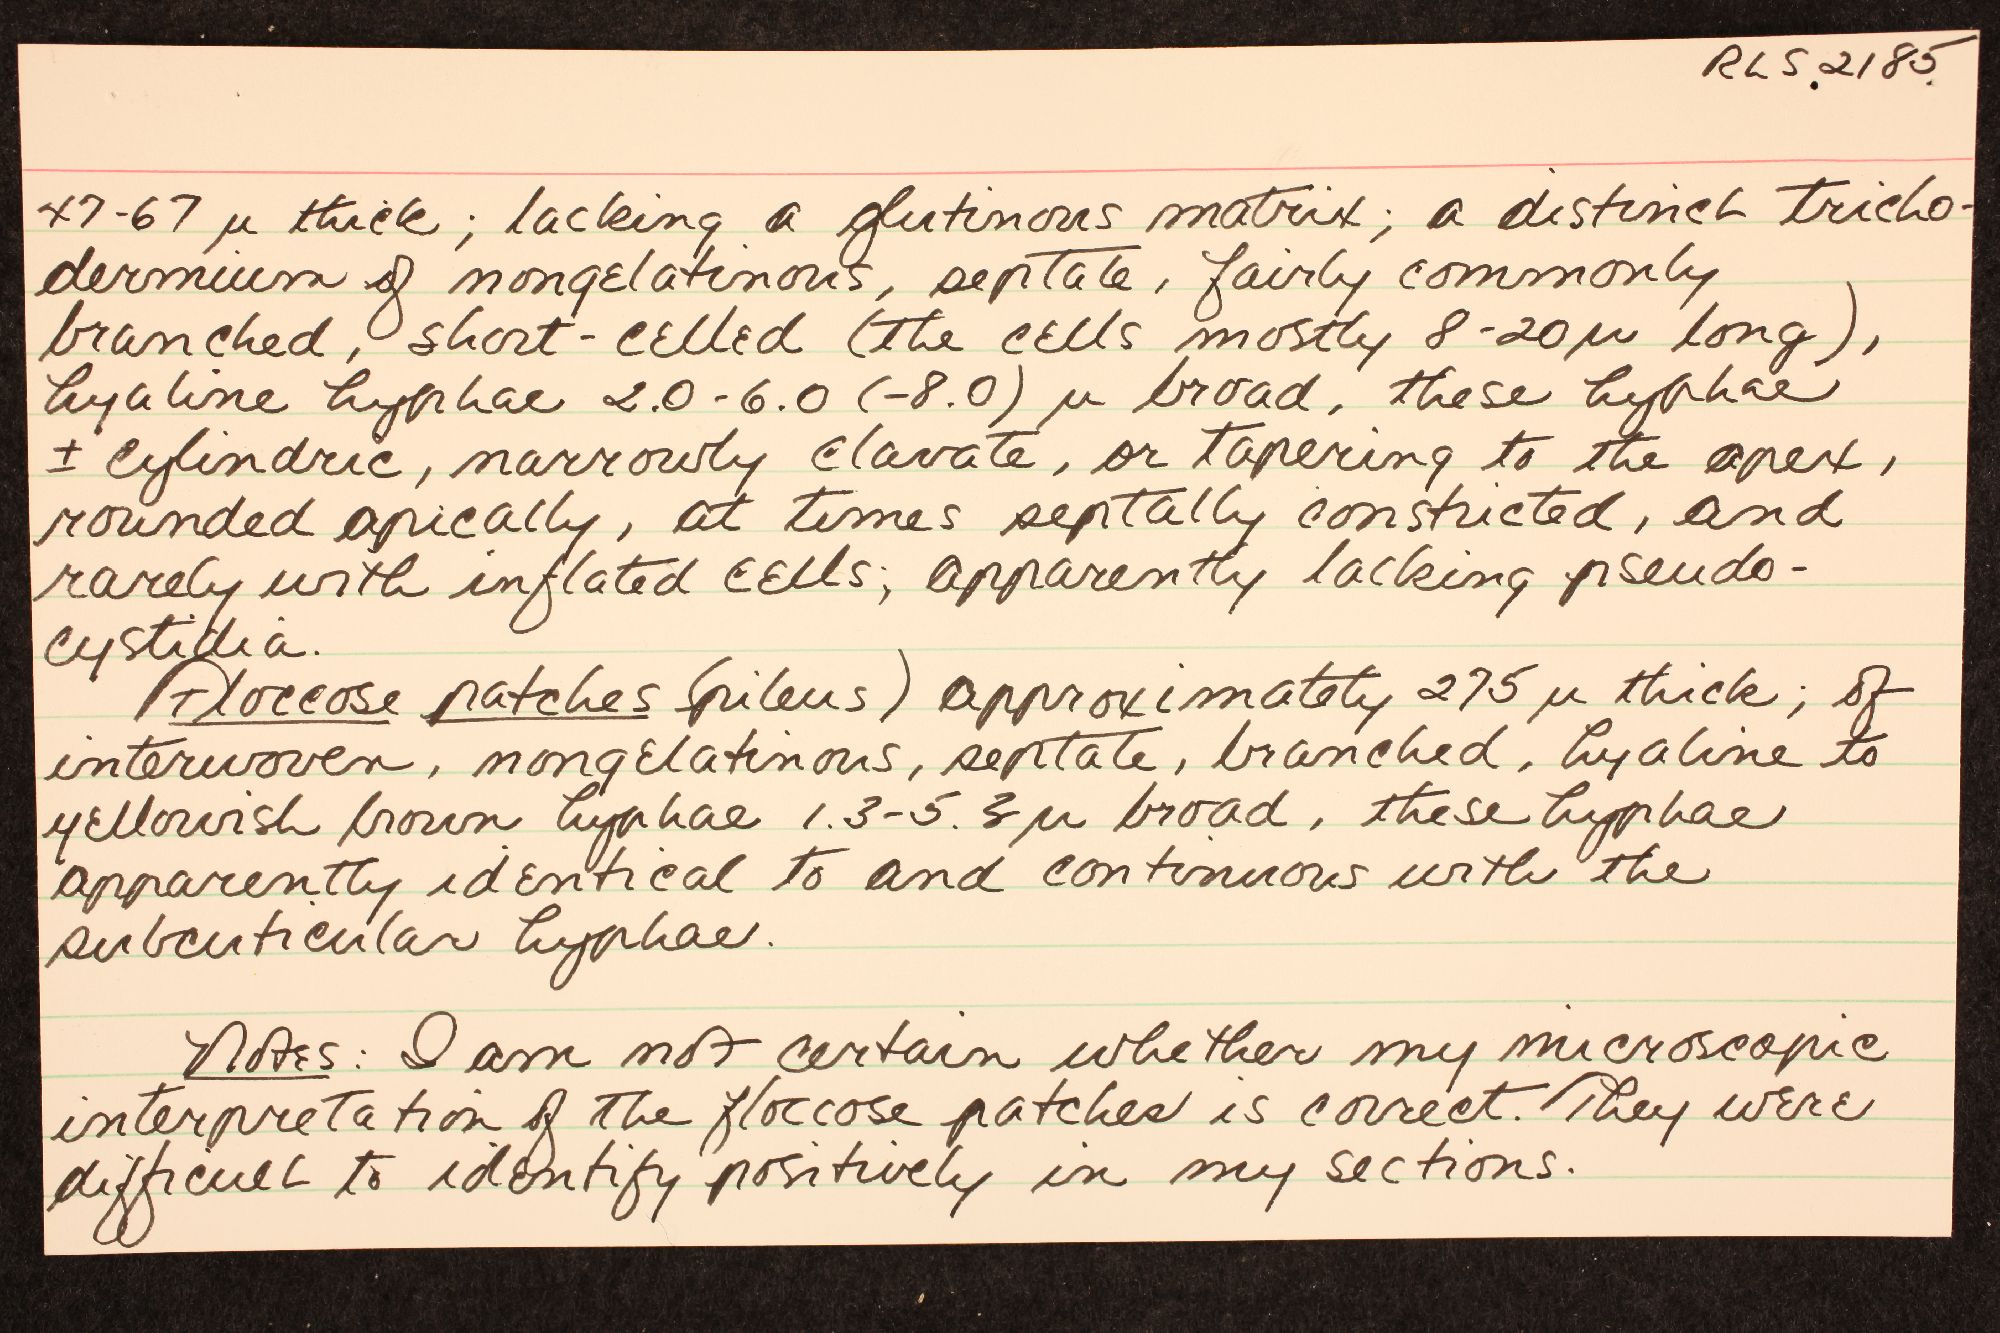 RLS.2185
47-67 µ thick; lacking a glutinous matrix; a distinct tricho-
dermium of nongelatinous, septate, fairly commonly
branched, short-celled (the cells mostly 8-20 µ long),
hyaline hyphae 2.0-6.0 (-8.0) µ broad, these hyphae
± cylindric, narrowly clavate, or tapering to the apex,
rounded apically, at times septally constricted, and
rarely with inflated cells; apparently lacking pseudo-
cystidia.
Floccose patches (pileus) approximately 275 µ thick; of
interwoven, nongelatinous, septate, branched, hyaline to
yellowish brown hyphae 1.3-5.3 µ broad, these hyphae
apparently identical to and continuous with the
subcuticular hyphae.
Notes: I am not certain whether my microscopic
interpretation of the floccose patches is correct. They were
difficult to identify positively in my sections.